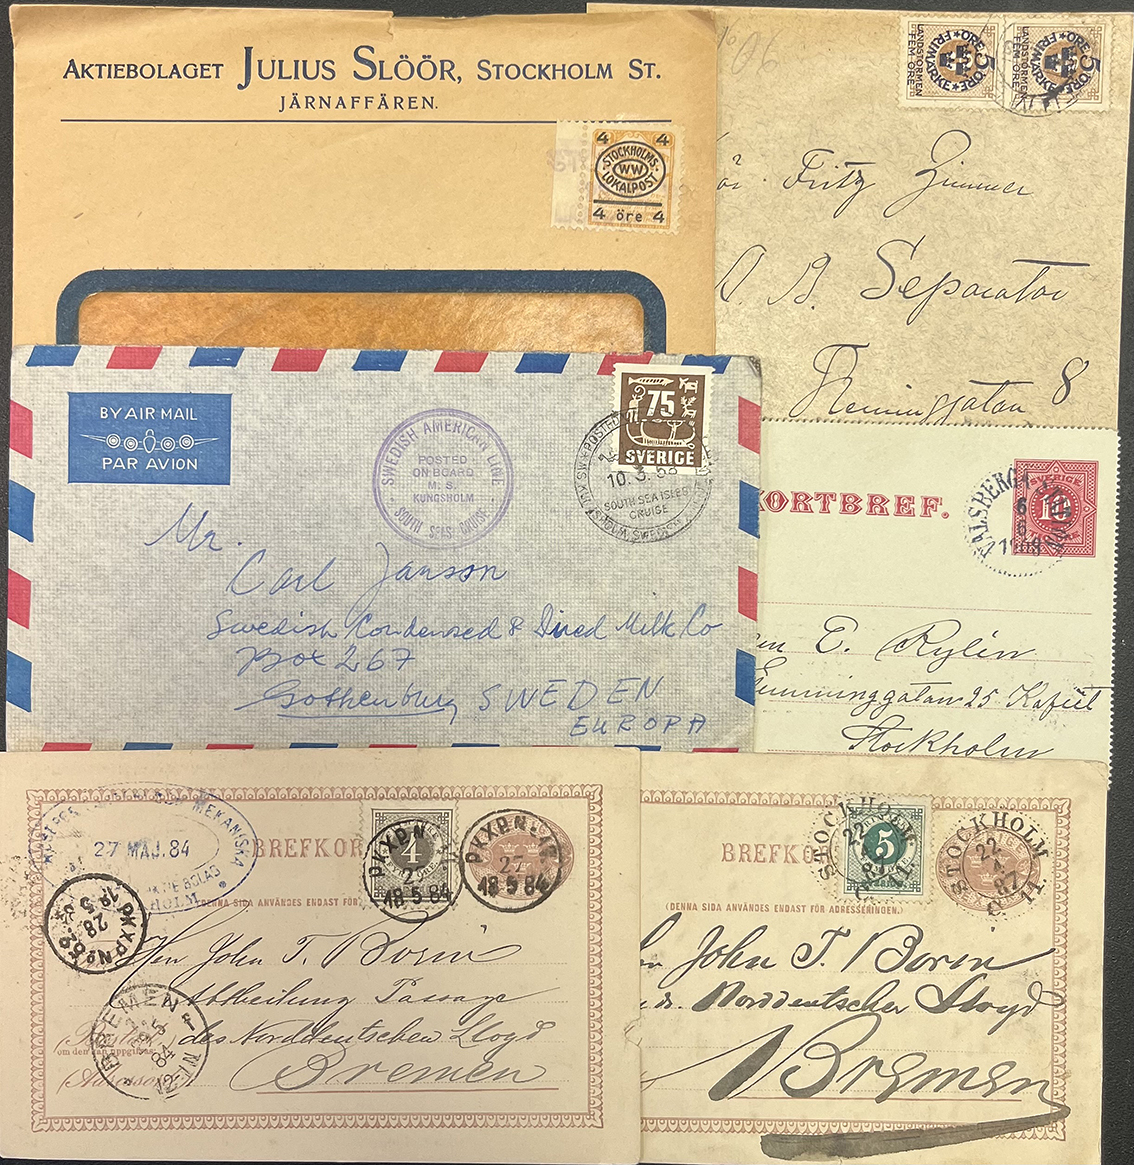 AKTIEBOLAGET JULIUS SLÖÖR, STOCKHOLM ST.
JÄRNAFFÄREN.
4 4
STOCKHOLMS-
WW
LOKALPOST
4 öre 4
5 ÖRE
FRIMÄRKE
LANDSTORMEN
FEM ÖRE
5 ÖRE
FRIMÄRKE
LANDSTORMEN
FEM ÖRE
Fritz Zimmer
A. B. Separator
Flemminggatan 8
BY AIR MAIL
PAR AVION
SWEDISH AMERICAN LINE
POSTED
ON BOARD
M. S.
KUNGSHOLM
SOUTH SEAS CRUISE
75
SVERIGE
10. 3. 58
SOUTH SEA ISLES
CRUISE
Mr.
Carl Janson
Swedish Condensed & Dried Milk Co
Box 267
Gothenburg SWEDEN
EUROPA
KORTBREF.
SVERIGE
10
E. Rylin
Stockholm
27 MAJ. 84
BREFKOR
4
PKXP.N
18 5 84
PKXP.N
27
18 5 84
(DENNA SIDA ANVÄNDES ENDAST FÖR
PKXP.No 2
28
5
Herr John T. Borin
Abtheilung Passage
des Norddeutschen Lloyd
Bremen
om den kan uppgifvas
BREMEN
84
BREFKO
5
STOCKHOLM
22
87
STOCKHOLM
22
87
(DENNA SIDA ANVÄNDES ENDAST FÖR ADRESSERINGEN.)
John T. Borin
Norddeutscher Lloyd
Bremen